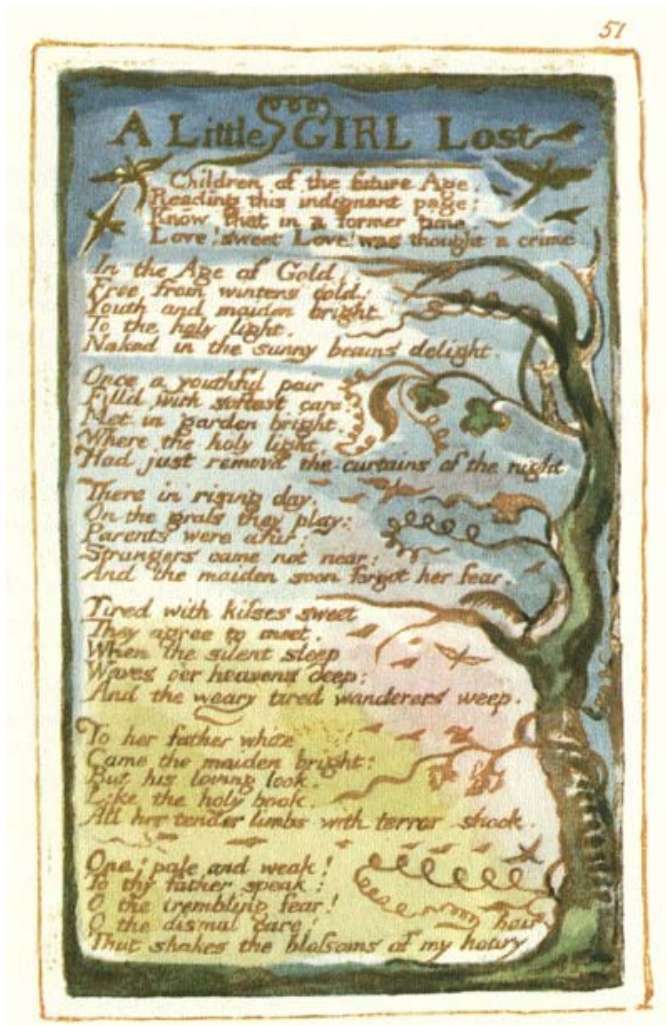 51
A Little GIRL Lost
Children of the future Age,
Reading this indignant page;
Know that in a former time,
Love! sweet Love! was thought a crime
In the Age of Gold,
Free from winters cold:
Youth and maiden bright,
To the holy light,
Naked in the sunny beams delight.
Once a youthful pair
Fill'd with softest care:
Met in garden bright,
Where the holy light,
Had just removd the curtains of the night
There in rising day,
On the grass they play:
Parents were afar:
Strangers came not near:
And the maiden soon forgot her fear.
Tired with kisses sweet
They agree to meet,
When the silent sleep
Waves o'er heavens deep:
And the weary tired wanderers weep.
To her father white
Came the maiden bright:
But his loving look,
Like the holy book,
All her tender limbs with terror shook.
Ona! pale and weak!
To thy father speak:
O the trembling fear!
O the dismal care!
That shakes the blossoms of my hoary hair